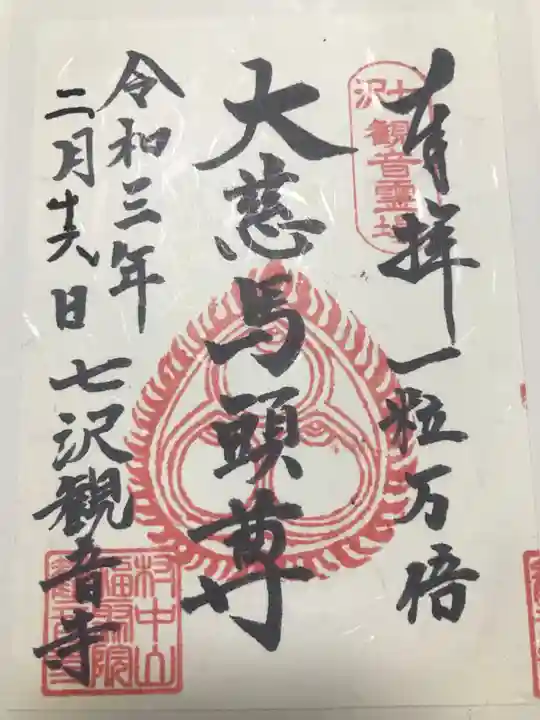 奉拝 一粒万倍
七沢
観音霊場
大慈馬頭尊
令和三年
二月廿六日 七沢観音寺